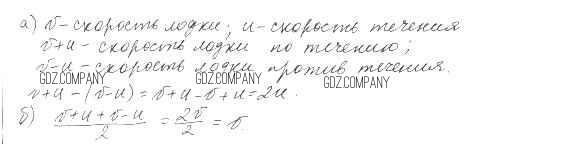 а) v - скорость лодки; u - скорость течения
v+u - скорость лодки по течению;
v-u - скорость лодки против течения.
GDZ.COMPANY GDZ.COMPANY GDZ.COMPANY
v+u-(v-u)=v+u-v+u=2u.
б) (v+u+v-u)/2 = 2v/2 = v.